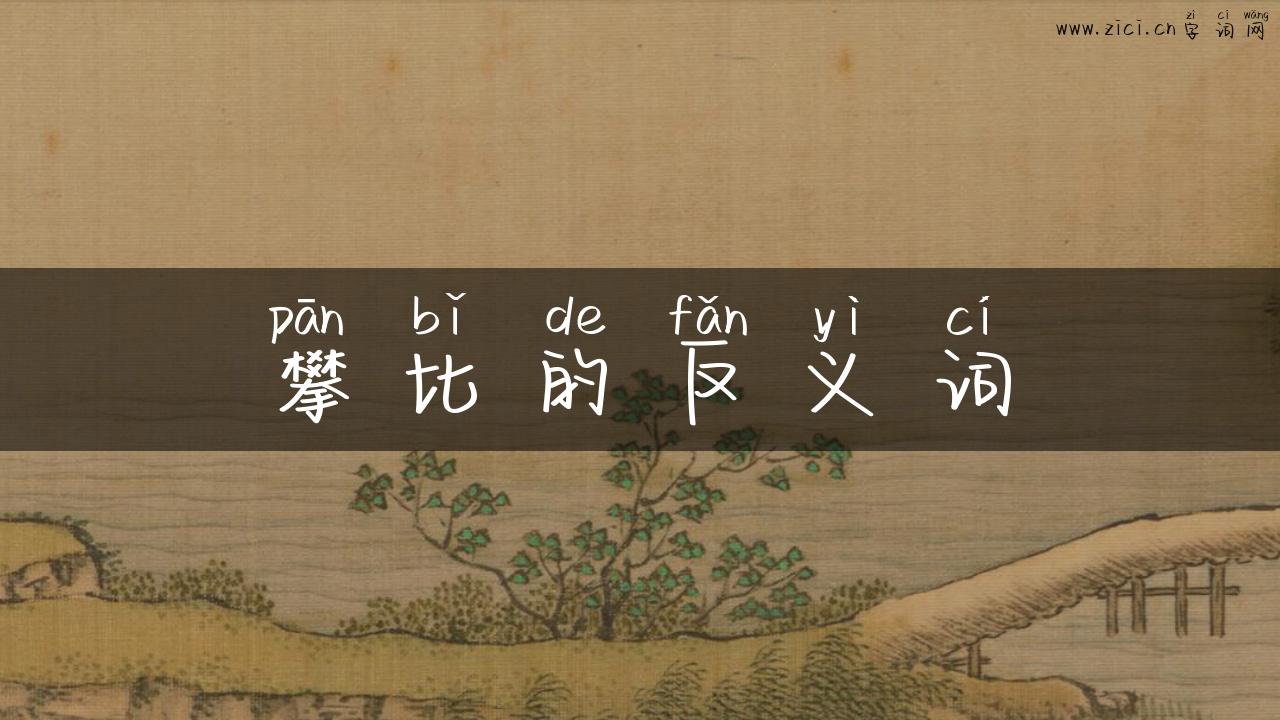 zì cí wǎng
www.zici.cn 字 词 网
pān bǐ de fǎn yì cí
攀 比 的 反 义 词